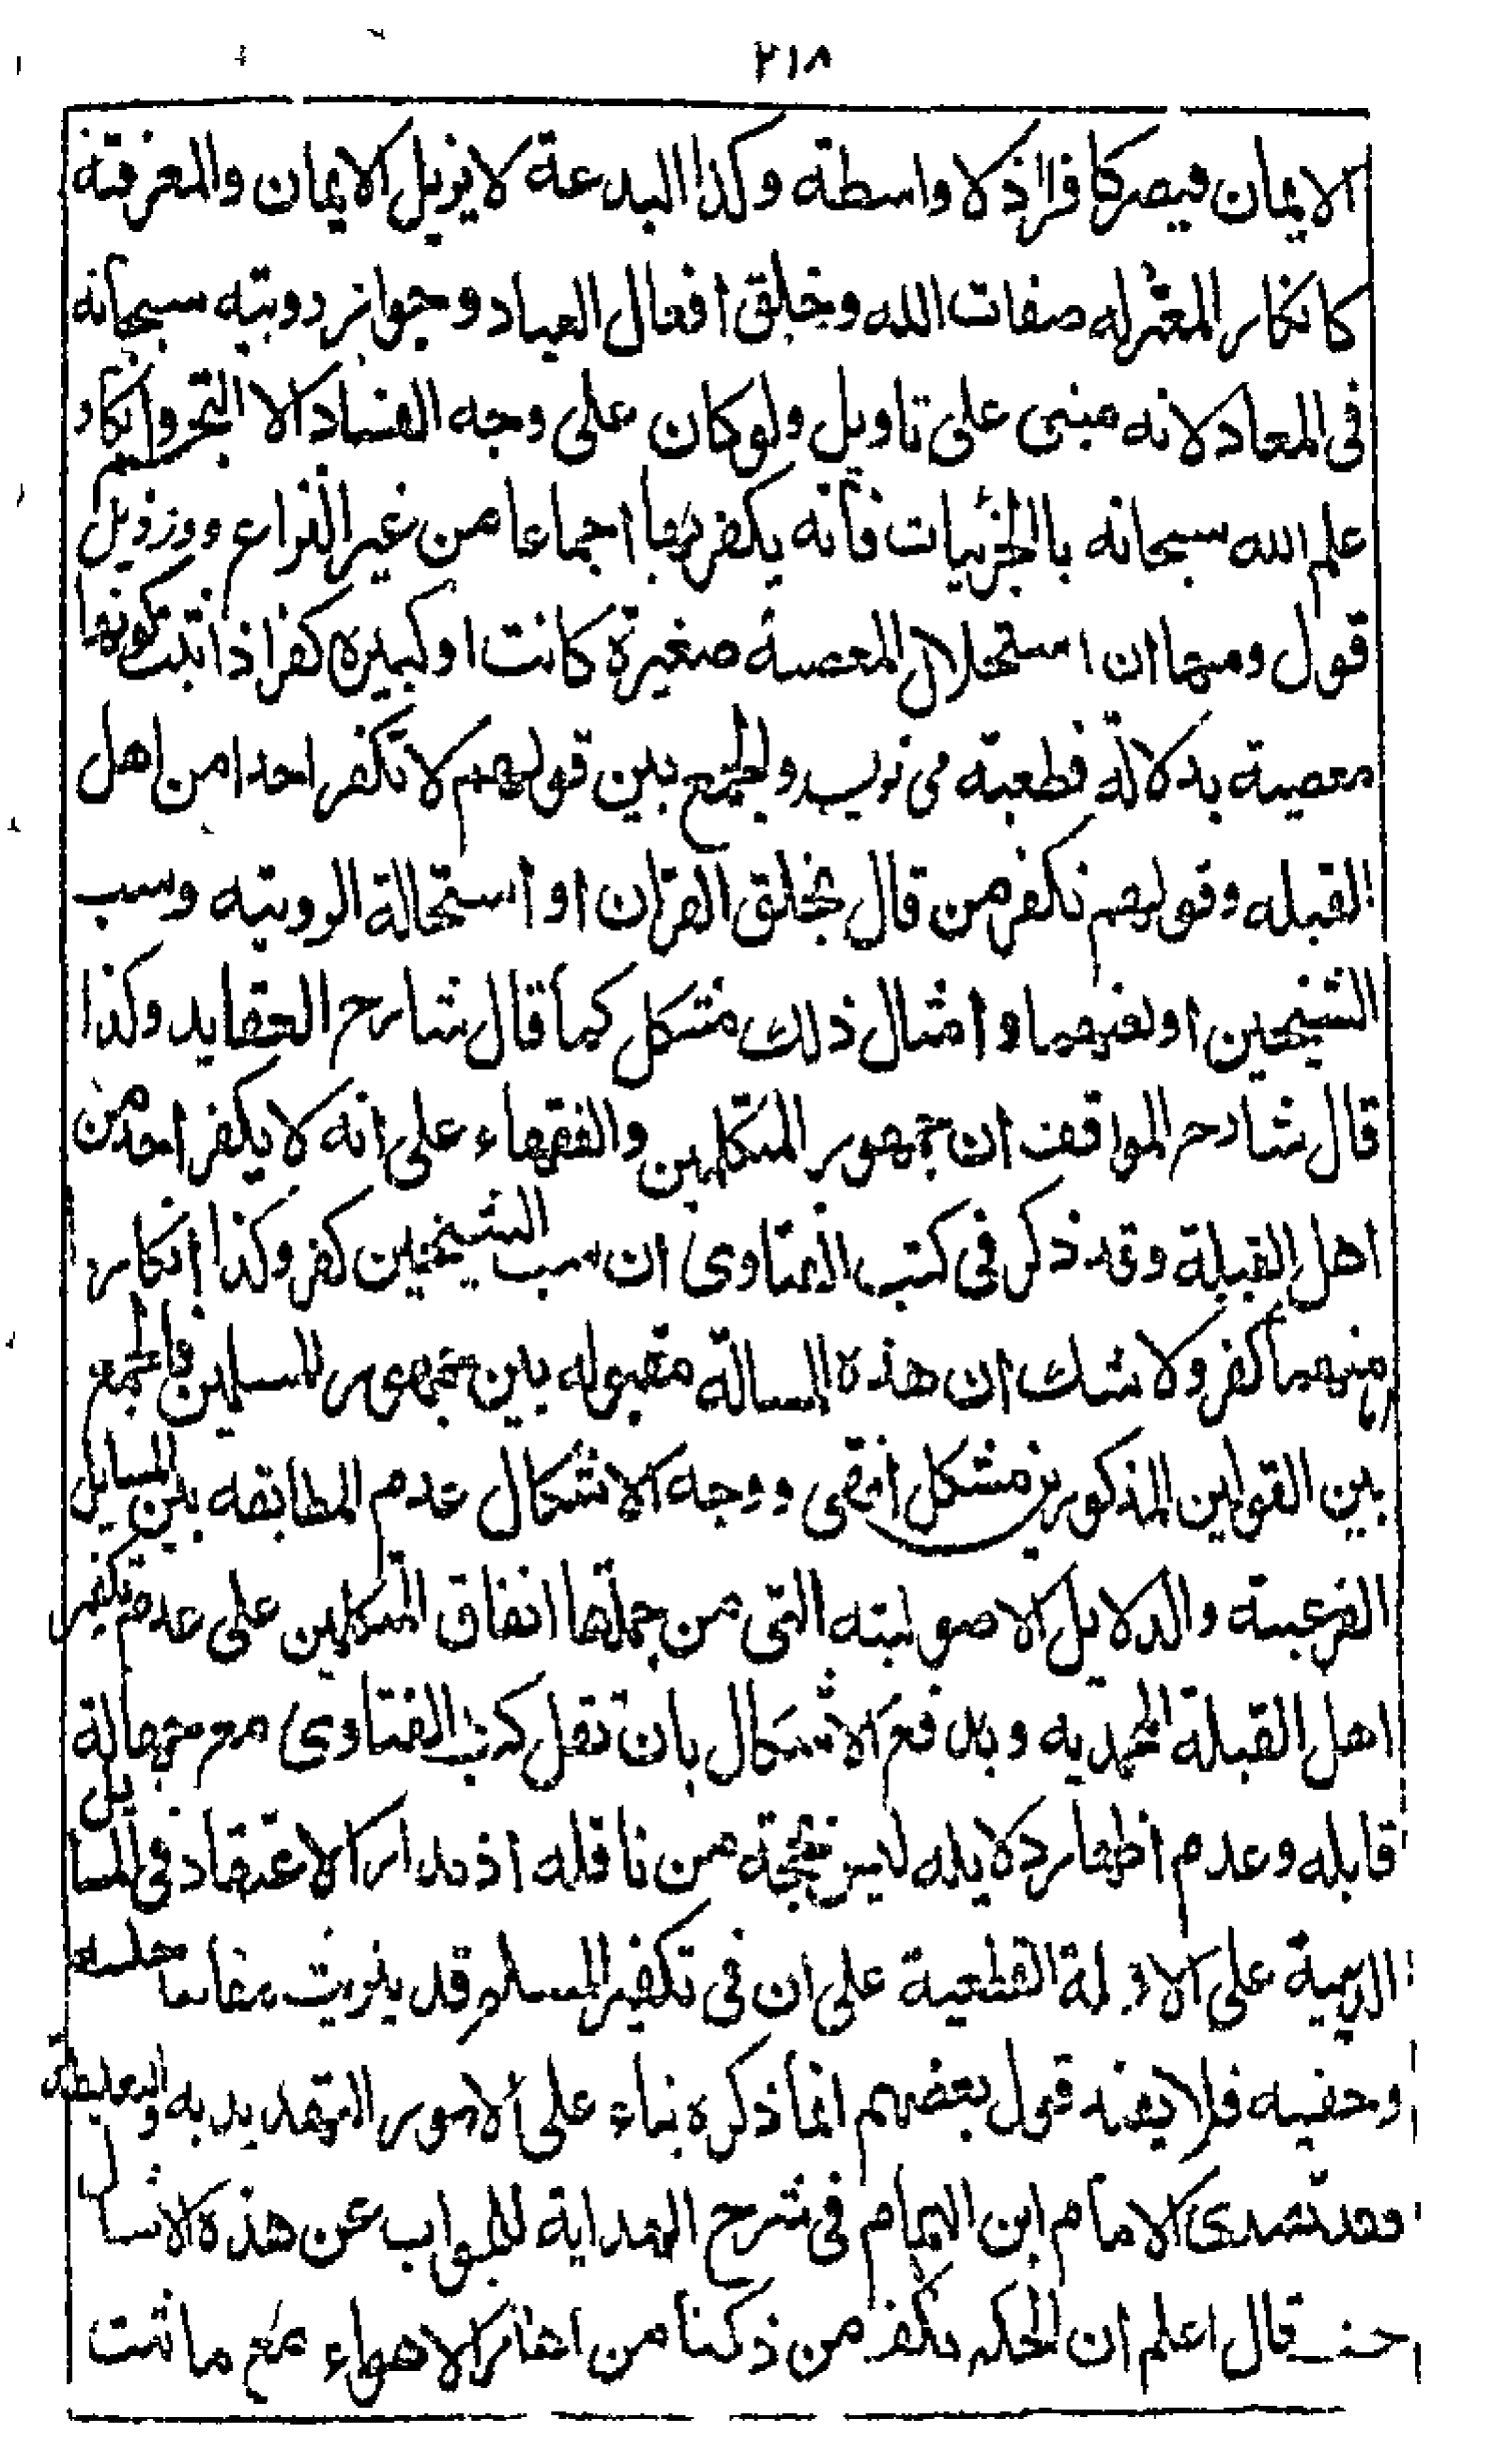 ٢١٨
الايمان فيصر كافرا اذ لا واسطة وكذا البدعة لا يزيل الايمان والمعرفة
كانكار المعتزله صفات الله وخلق افعال العباد وجواز رويته سبحانه
فى المعاد لانه مبنى على تاويل ولو كان على وجه الفساد الا التجسيم وانكار
علم الله سبحانه باالجزئيات فانه يكفر بها اجماعا من غير النزاع
قول ومنها ان استحلال المعصية صغيرة كانت او كبيره كفر اذا ثبت كونها
معصية بدلالة قطعية والجمع بين قولهم لا نكفر احدا من اهل
القبله وقولهم نكفر من قال بخلق القران او استحالة الرويته وسب
الشيخين او لعنهما وامثال ذلك مشكل كما قال شارح العقايد وكذا
قال شارح المواقف ان جمهور المتكلمين والفقهاء على انه لا يكفر احد من
اهل القبلة وقد ذكر فى كتب الفتاوى ان سب الشيخين كفر وكذا انكار
كفر ولا شك ان هذه المسالة مقبوله بين جمهور المسلمين فالجمع
بين القولين المذكورين مشكل انتهى ووجه الاشكال عدم المطابقه بين المسايل
الفرعية والدلايل الاصوليته التى من جملتها اتفاق المتكلمين على عدم تكفير
اهل القبلة المحمديه ويدفع الاشكال بان نقل كتب الفتاوى مع جهالة
قايله وعدم اظهار دلايله ليس بحجة من ناقله اذ مدار الاعتقاد فى المسايل
الدينية على الادلة القطعية على ان فى تكفير المسلم قد يترتب مفاسد جليه
وخفيه فلا يفيد قول بعضهم انما ذكره بناء على الامور التهديديه والتغليظة
وقد تصدى الامام ابن الهمام فى شرح الهداية للجواب عن هذه الاشكال
حيث قال اعلم ان الحكم بكفر من ذكرنا من اهل الاهواء مع ما ثبت